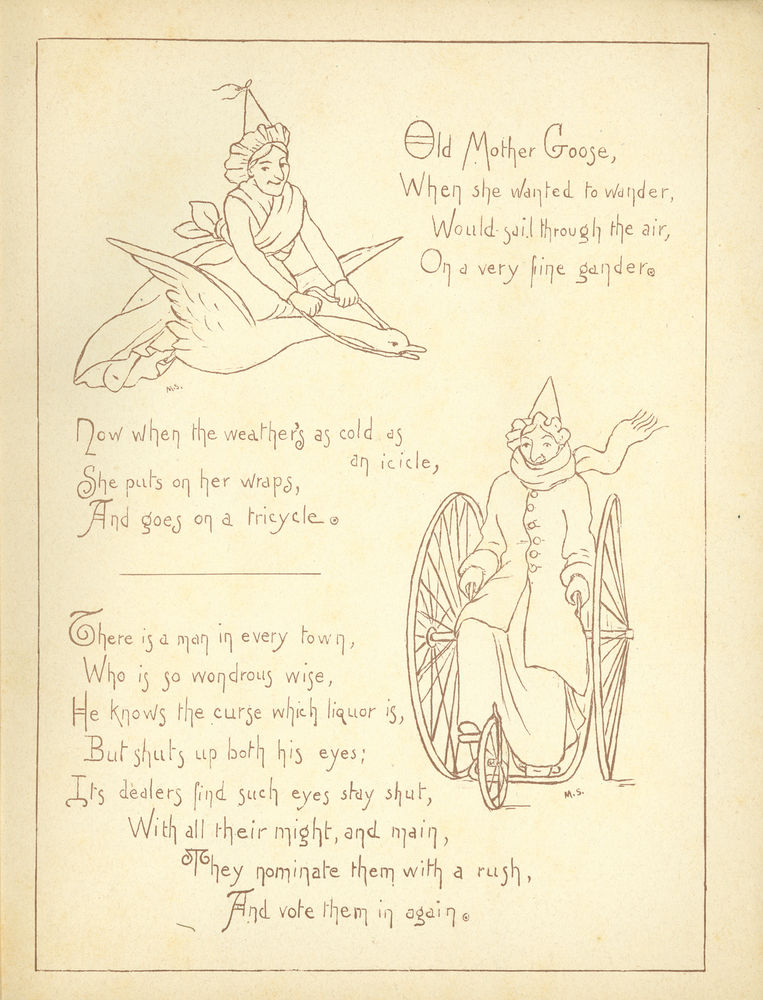 Old Mother Goose,
When she wanted to wander,
Would sail through the air,
On a very fine gander.
M.S.
Now when the weather's as cold as
an icicle,
She puts on her wraps,
And goes on a tricycle.
There is a man in every town,
Who is so wondrous wise,
He knows the curse which liquor is,
But shuts up both his eyes;
Its dealers find such eyes stay shut,
With all their might, and main,
They nominate them with a rush,
And vote them in again.
M.S.